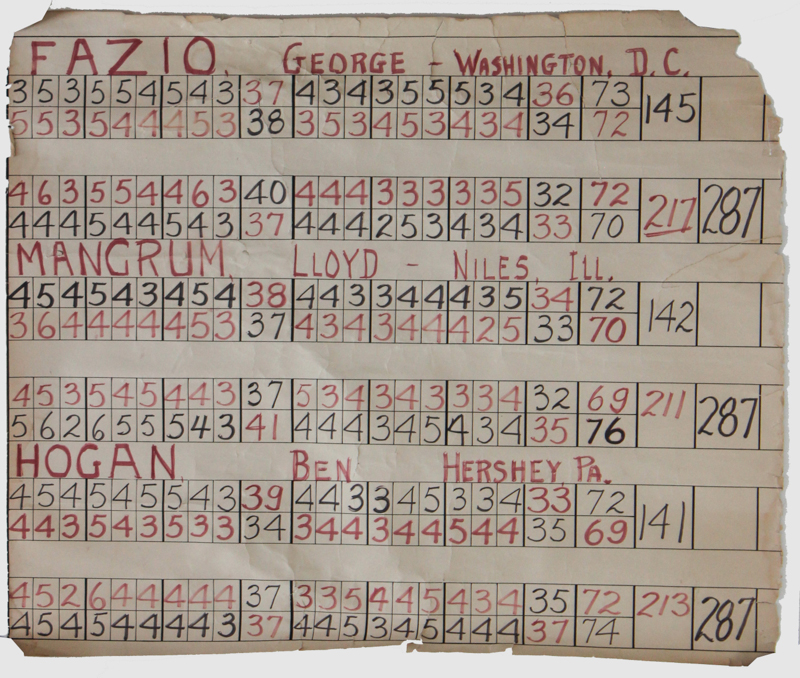 FAZIO, GEORGE - WASHINGTON, D.C.
3 5 3 5 5 4 5 4 3 37 4 3 4 3 5 5 5 3 4 36 73 145
5 5 3 5 4 4 4 5 3 38 3 5 3 4 5 3 4 3 4 34 72
4 6 3 5 5 4 4 6 3 40 4 4 4 3 3 3 3 3 5 32 72 217 287
4 4 4 5 4 4 5 4 3 37 4 4 4 2 5 3 4 3 4 33 70
MANGRUM, LLOYD - NILES, ILL.
4 5 4 5 4 3 4 5 4 38 4 4 3 3 4 4 4 3 5 34 72 142
3 6 4 4 4 4 4 5 3 37 4 3 4 3 4 4 4 2 5 33 70
4 5 3 5 4 5 4 4 3 37 5 3 4 3 4 3 3 3 4 32 69 211 287
5 6 2 6 5 5 5 4 3 41 4 4 4 3 4 5 4 3 4 35 76
HOGAN BEN HERSHEY, PA.
4 5 4 5 4 5 5 4 3 39 4 4 3 3 4 5 3 3 4 33 72 141
4 4 3 5 4 3 5 3 3 34 3 4 4 3 4 4 5 4 4 35 69
4 5 2 6 4 4 4 4 4 37 3 3 5 4 4 5 4 3 4 35 72 213 287
4 5 4 5 4 4 4 4 3 37 4 4 5 3 4 5 4 4 4 37 74